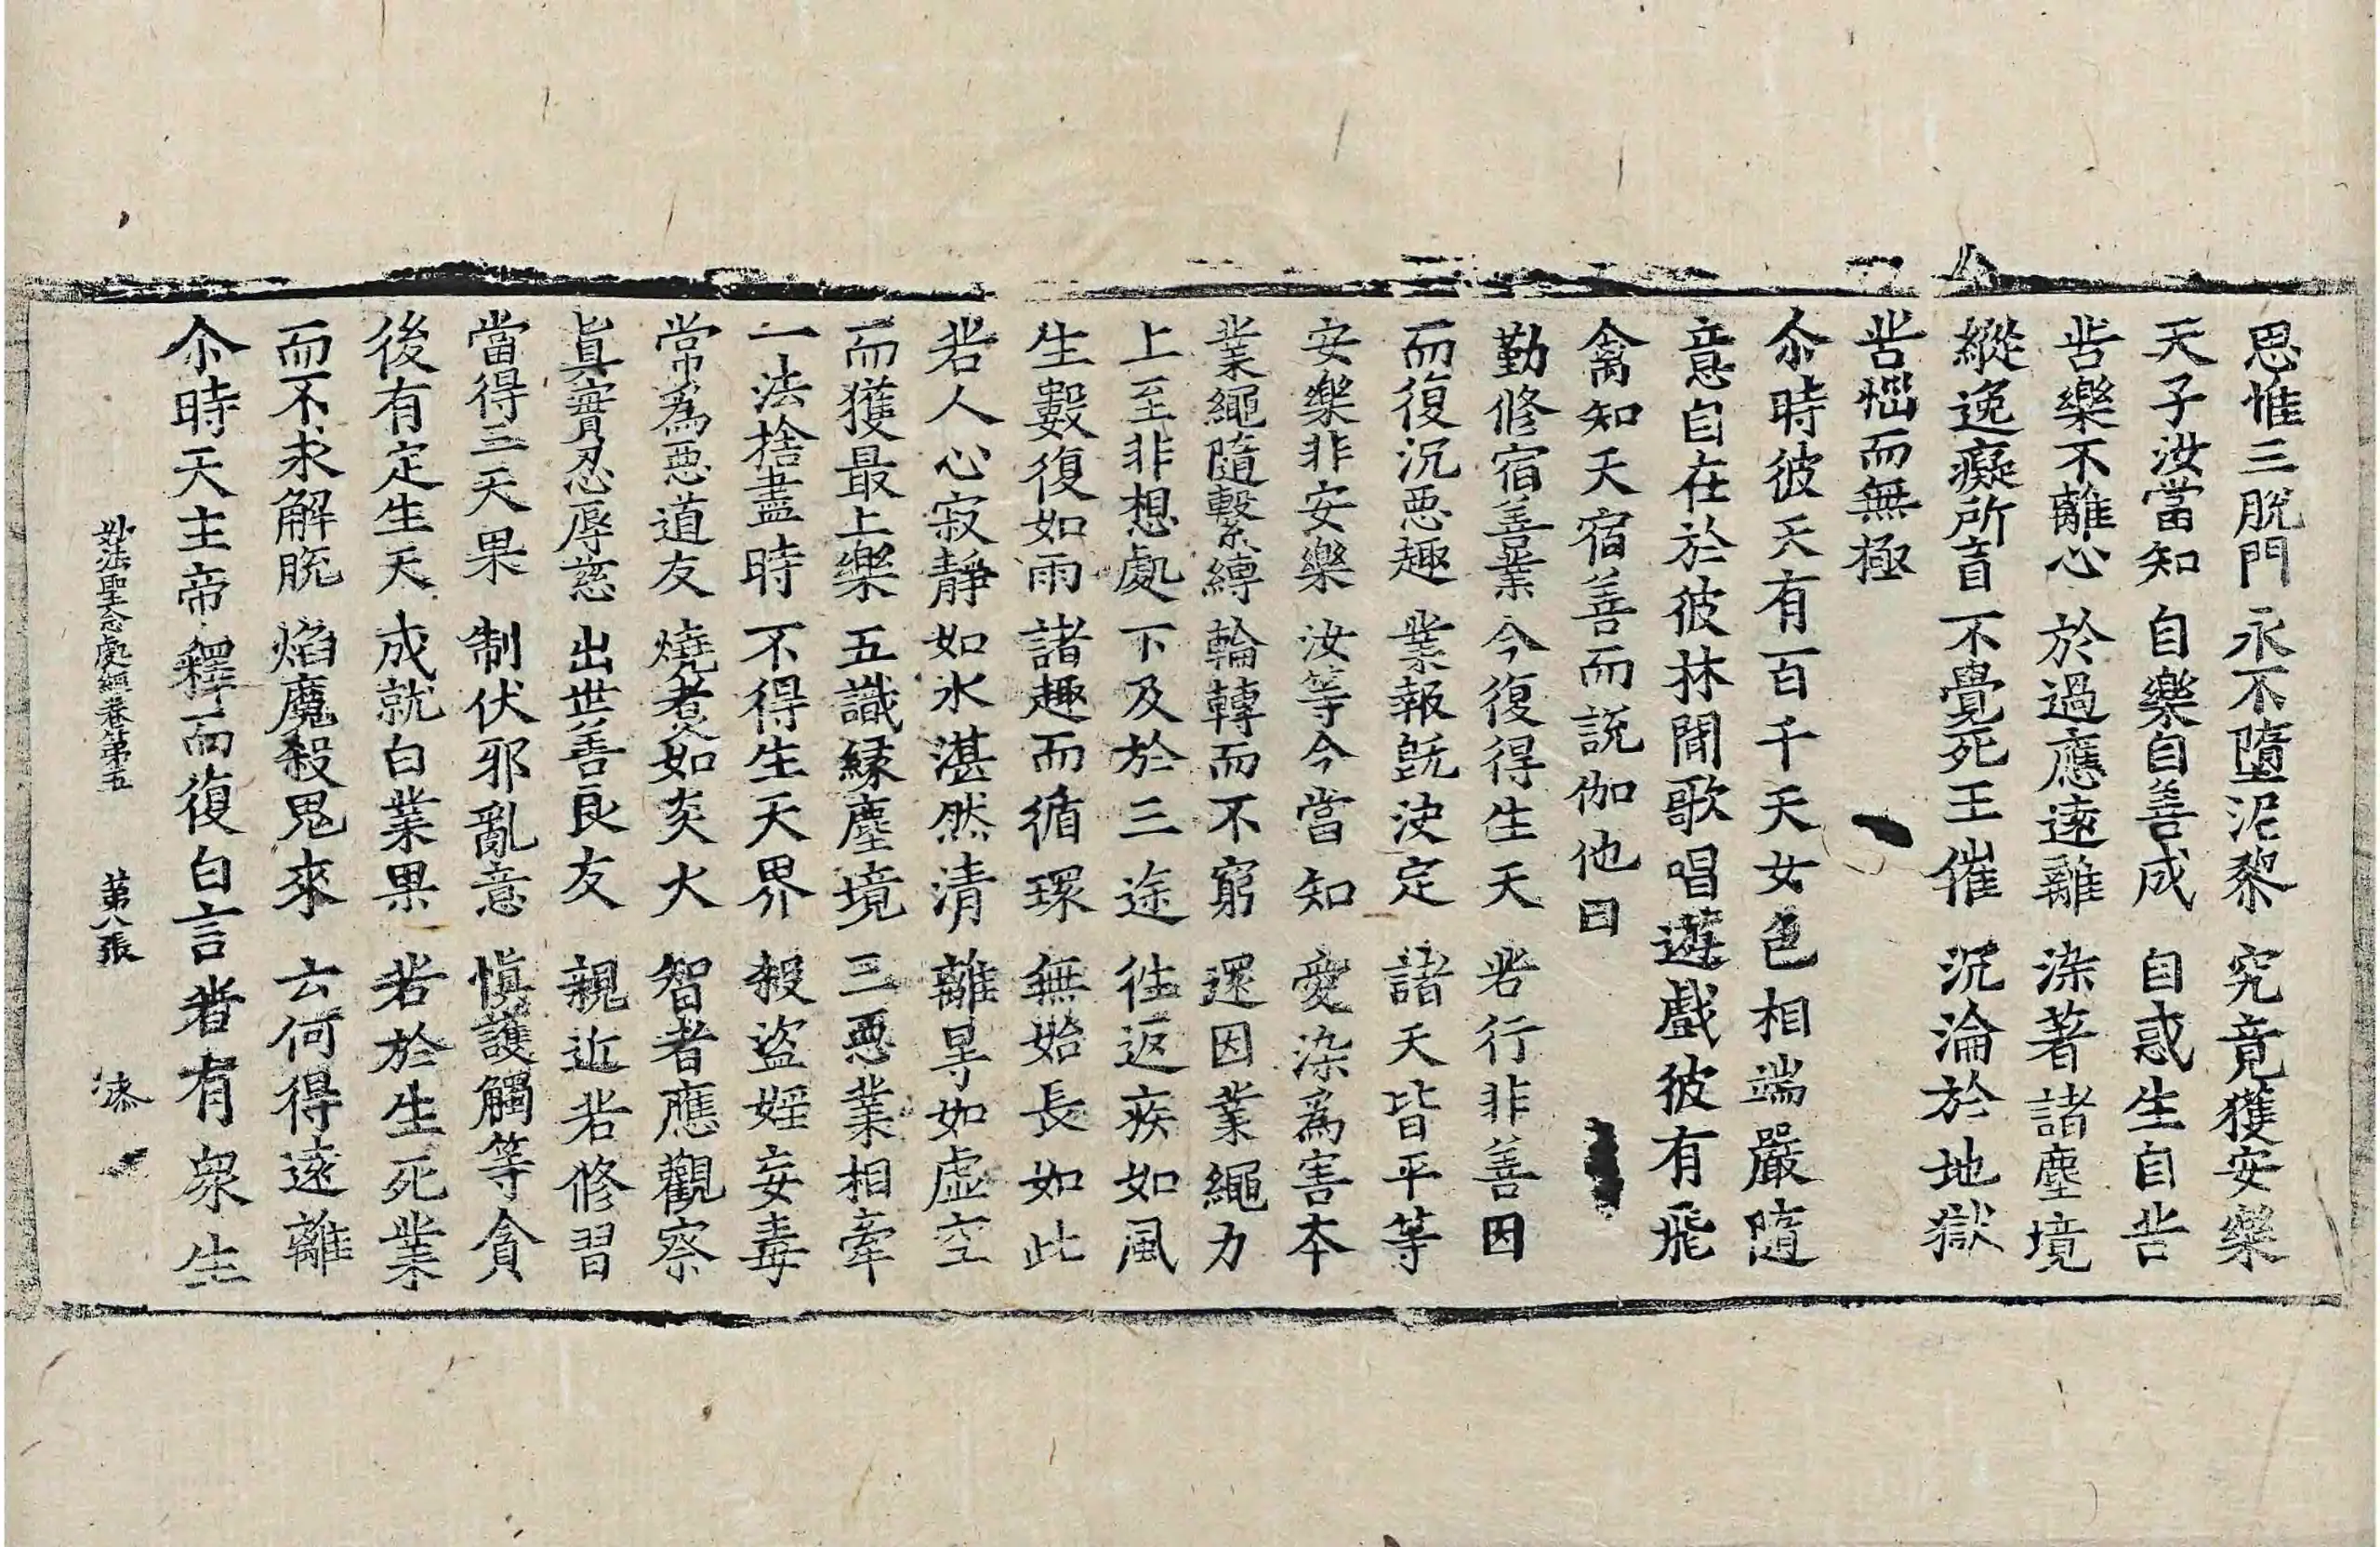 思惟三脫門 永不墮泥黎 究竟獲安樂
天子汝當知 自樂自善成 自惑生自苦
苦樂不離心 於過應遠離 染著諸塵境
縱逸癡所盲 不覺死王催 沉淪於地獄
苦惱而無極
尒時彼天有百千天女色相端嚴隨
意自在於彼林間歌唱遊戲彼有飛
禽知天宿善而說伽他曰
勤修宿善業 今復得生天 若行非善因
而復沉惡趣 業報旣決定 諸天皆平等
安樂非安樂 汝等今當知 愛染為害本
業繩隨繫縛 輪轉而不窮 還因業繩力
上至非想處 下及於三途 往返疾如風
生數復如雨 諸趣而循環 無始長如此
若人心寂靜 如水湛然清 離㝵如虛空
而獲最上樂 五識緣塵境 三惡業相牽
一法捨盡時 不得生天界 殺盜婬妄毒
常為惡道友 燒煑如炎火 智者應觀察
眞實忍辱慈 出世善良友 親近若修習
當得三天果 制伏邪亂意 愼護觸等貪
後有定生天 成就白業果 若於生死業
而不求解脫 焰魔殺鬼來 云何得遠離
尒時天主帝釋而復白言若有衆生
妙法聖念處經卷第五 第八張 漆